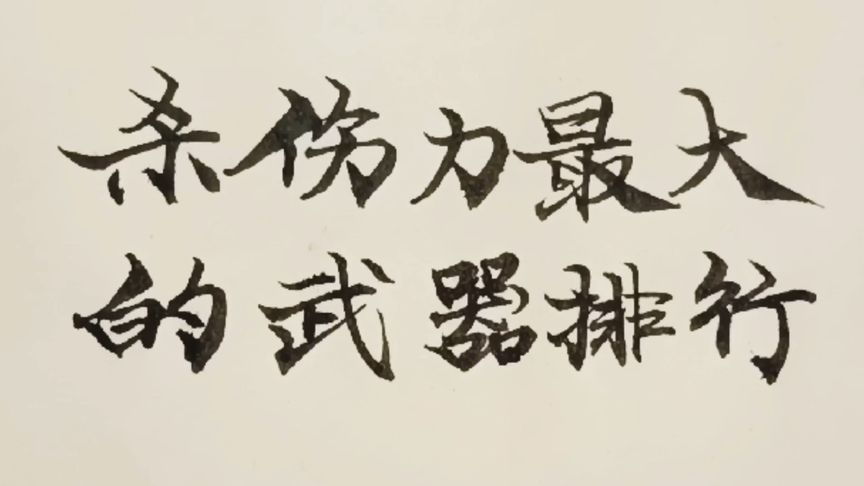 杀伤力最大
的武器排行